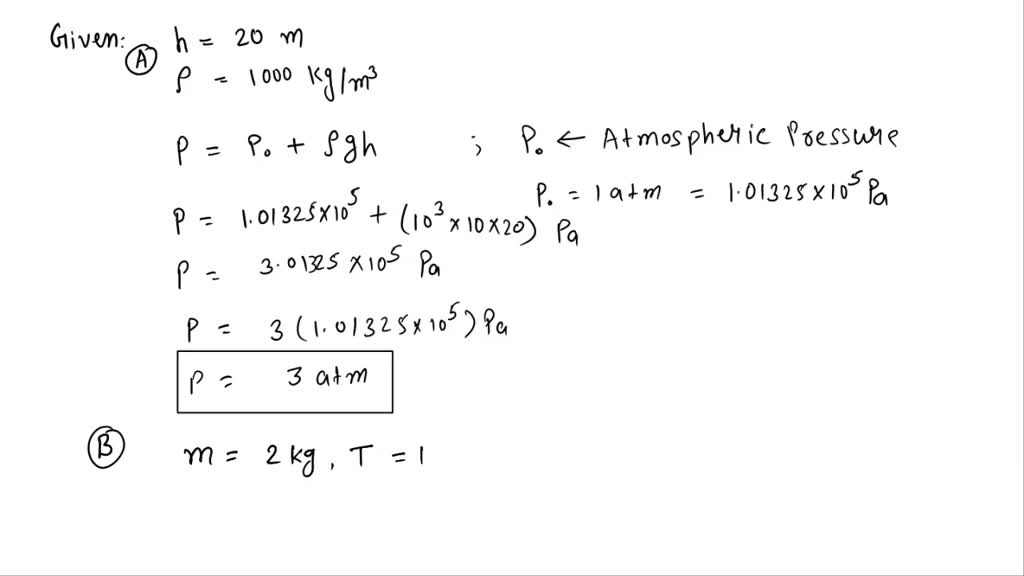 Given:
Ⓐ h = 20 m
ρ = 1000 kg/m³
P = P₀ + ρgh ; P₀ ← Atmospheric Pressure
P₀ = 1 atm = 1.01325×10⁵ Pa
P = 1.01325×10⁵ + (10³×10×20) Pa
P = 3.01325×10⁵ Pa
P = 3(1.01325×10⁵) Pa
P = 3 atm
Ⓑ m = 2 kg, T = 1